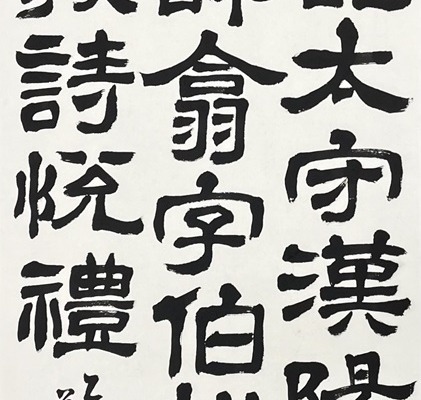 太守漢陽
翕字伯
詩悅禮